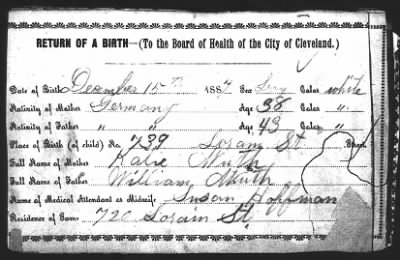 RETURN OF A BIRTH—(To the Board of Health of the City of Cleveland.)
Date of Birth December 15th 1887 Sex Boy Color white
Nativity of Mother Germany Age 38 Color "
Nativity of Father " " Age 43 Color "
Place of Birth (of child) No. 739 Lorain St
Full Name of Mother Muth
Full Name of Father William Muth
Name of Medical Attendant or Midwife Susan Hoffman
Residence of Same 720 Lorain St.